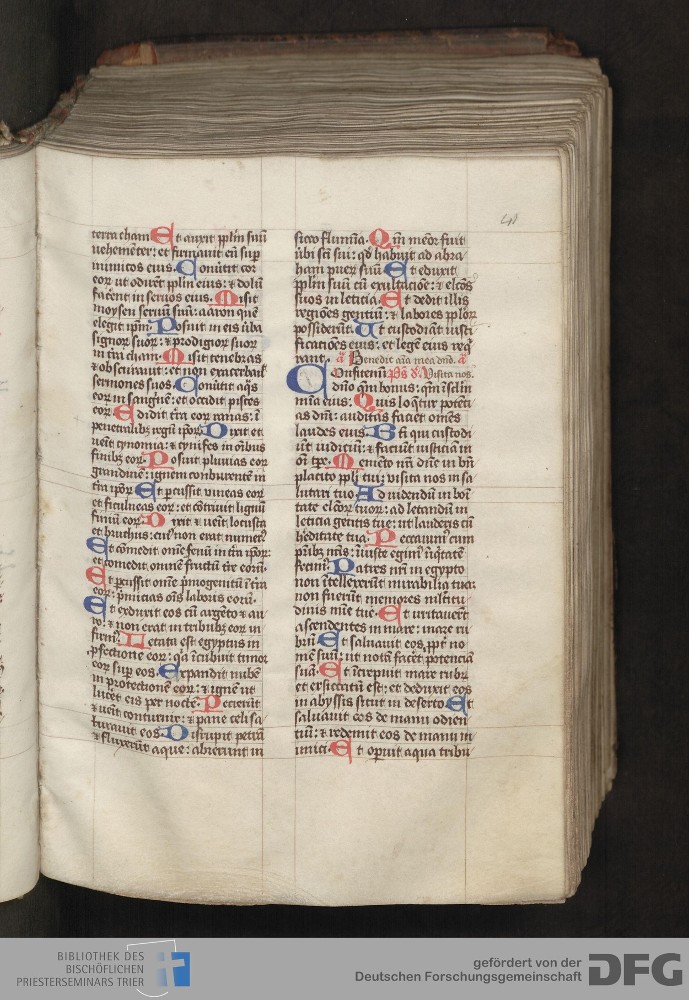 terra cham Et auxit pplm suu
vehementer: et firmavit eu sup
inimicos eius. Convertit cor
eor ut odiret pplm eius: & dolu
facerent in servos eius. Misit
moysen servum suu: aaron que
elegit ipm. Posuit in eis verba
signor suor: & prodigior suor
in tra cham. Misit tenebras
& obscuravit: et non exacerbavit
sermones suos. Convertit aqs
eor in sanguine: et occidit pisces
eor. Edidit tra eor ranas: i
penetralibz regu ipor. Dixit et
venit cynomia: & cynifes in oibus
finibz eor. Posuit pluvias eor
grandine: ignem conburente in
tra ipor. Et percussit vineas eor
et ficulneas eor: et cotrivit lignu
finiu eor. Dixit & venit locusta
et bruchus: cui non erat numerus
Et comedit ome fenu in tra ipor:
et comedit omne fructu tre eoru.
Et percussit ome pmogenitu i tra
eor: pmicias ois laboris eoru.
Et eduxit eos cu argeto & au
ro: & non erat in tribubz eor in
firm. Letata est egyptus in
pfectione eor: qa icubuit timor
eor sup eos. Expandit nube
in protectione eor: & igne ut
luceret eis per nocte. Pecierut
& venit coturnix: & pane celi sa
turavit eos. Disrupit petra
& fluxerut aque: abierunt in
sicco flumina. Qm memor fuit
verbi sci sui: qd habuit ad abra
ham pueru suu. Et eduxit
pplm suu cu exultacioe: & elcos
suos in leticia. Et dedit illis
regiones gentiu: & labores pplor
possiderut. Ut custodiant iusti
ficationes eius: et lege eius req
rant. a Benedic aia mea dno. a
Confitemi ps d. Visita nos.
dno qm bonus: qm i sclm
mia eius. Quis loqtur poteci
as dni: auditas faciet omes
laudes eius. Bti qui custodi
ut iudiciu: & faciut iusticia in
oi tpe. Memeto nri dne in bn
placito ppli tui: visita nos in sa
lutari tuo. Ad videndu in boni
tate elcor tuor: ad letandu in
leticia gentis tue: ut lauderis cu
hereditate tua. Peccavim cum
patribz nris: iniuste egim iniqtate
fecim. Patres nri in egypto
non itellexerut mirabilia tua:
non fuerut memores multitu
dinis mie tue. Et irritaverut
ascendentes in mare: mare ru
bru. Et salvavit eos ppt no
me suu: ut nota faceret potencia
sua. Et icrepuit mare rubr
et exsiccatu est: et deduxit eos
in abyssis sicut in deserto. Et
salvavit eos de manu odien
tiu: & redemit eos de manu in
imici. Et operuit aqua tribu
BIBLIOTHEK DES
BISCHÖFLICHEN
PRIESTERSEMINARS TRIER
gefördert von der
Deutschen Forschungsgemeinschaft
DFG